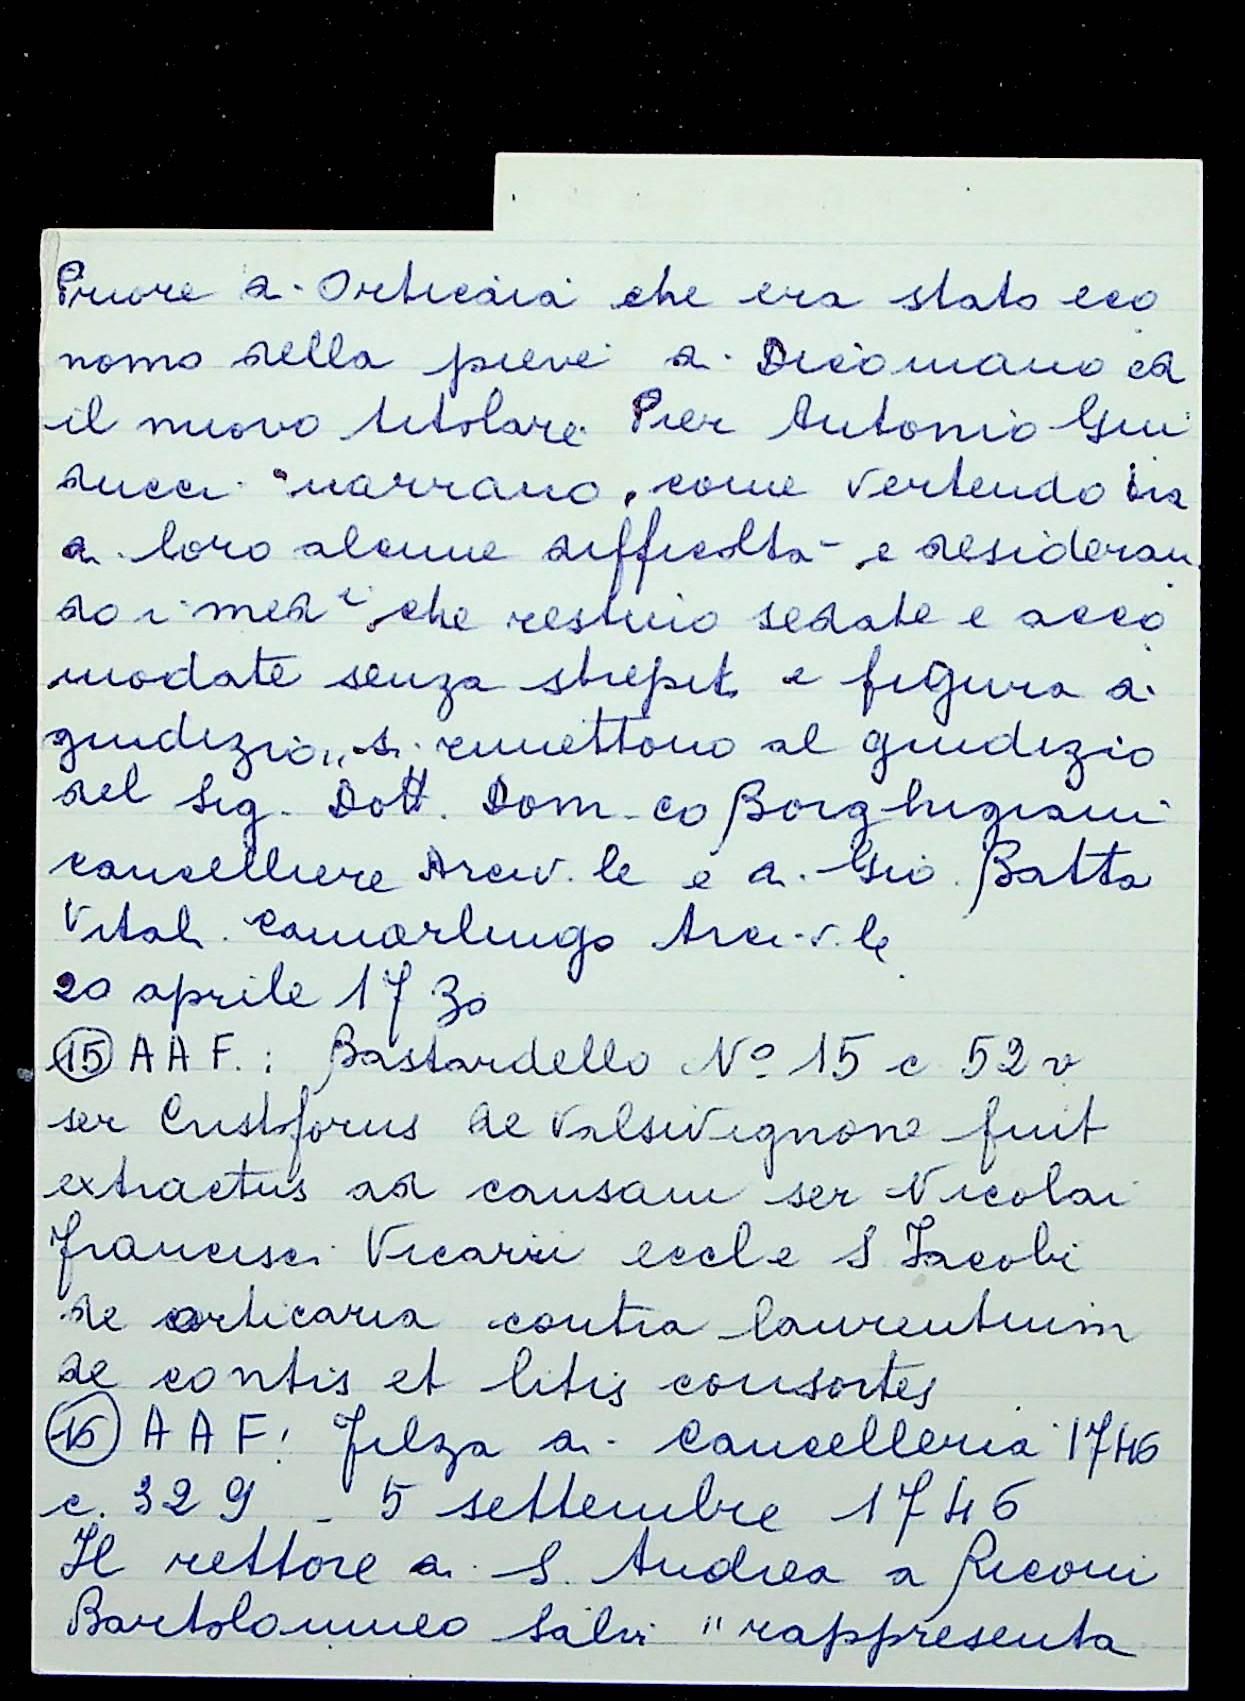 Priore di Orticaia che era stato eco
nomo della pieve di Dicomano ed
il nuovo titolare Pier Antonio Gui
ducci "narrano, come vertendo tra
di loro alcune difficoltà e desideran
do i med i che restino sedate e acco
modate senza strepit e figura di
giudizio,, si rimettono al giudizio
del Sig. Dott. Dom.co Borghigiani
cancelliere Arciv.le e di Gio. Batta
Vitali Camarlingo Arciv.le
20 aprile 1730
15 A A F.: Bastardello No 15 c 52 v
ser Cristoforus de Valsivignone fuit
extractus ad causam ser Nicolai
Francisci Vicarii eccl e S Jacobi
de orticaria contra laurentium
de contis et litis consortes
16 A A F: Filza di Cancelleria 1746
c. 329 - 5 settembre 1746
Il rettore di S. Andrea a Riconi
Bartolommeo Salvi "rappresenta